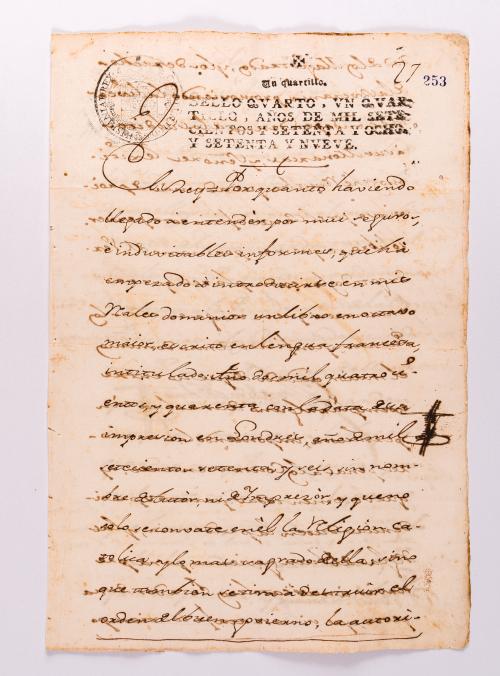 27
253
Un quartillo.
SELLO QVARTO, VN QVAR-
TILLO, AÑOS DE MIL SETE-
CIENTOS Y SETENTA Y OCHO,
Y SETENTA Y NUEVE.
El Rey = Por quanto haviendo
llegado a entender por mui seguros,
é indubitables informes, que há
empezado á introducirse en mis
Rales dominios un libro en octavo
maior, escrito en lengua francesa,
intitulado, Año dos mil quatro ci-
entos, y quarenta, con la data de su
impresion en Londres, año de mil
setecientos setenta, y seis, sin nom-
bre de Autor, ni de Impresór, y que no
solo se convate en él la Religion Ca-
tolica, y lo mas sagrado de ella, sino
que tambien se tira á destruir el
orden del buen govierno, la autori-